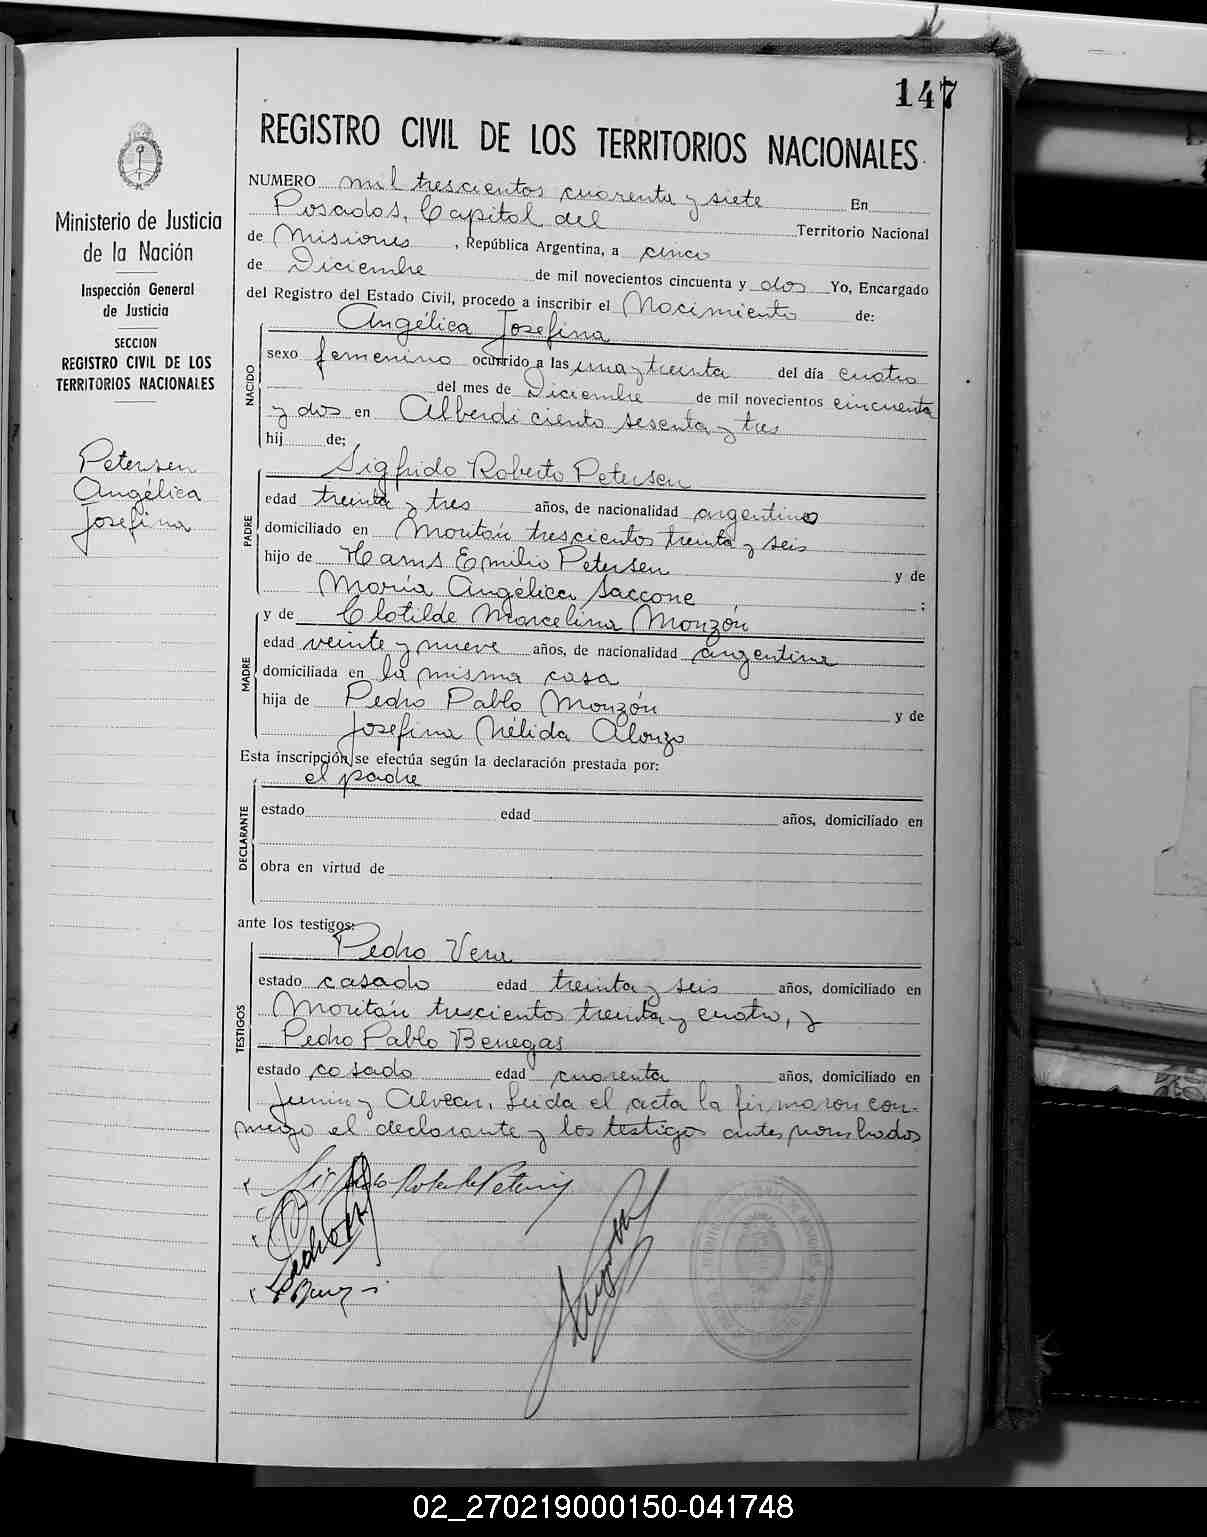 147
REGISTRO CIVIL DE LOS TERRITORIOS NACIONALES
Ministerio de Justicia
de la Nación
Inspección General
de Justicia
SECCION
REGISTRO CIVIL DE LOS
TERRITORIOS NACIONALES
Petersen
Angélica
Josefina
NUMERO mil trescientos cuarenta y siete En
Posadas, Capital del Territorio Nacional
de Misiones, República Argentina, a cinco
de Diciembre de mil novecientos cincuenta y dos Yo, Encargado
del Registro del Estado Civil, procedo a inscribir el Nacimiento de:
Angélica Josefina
NACIDO
sexo femenino ocurrido a las una y treinta del día cuatro
del mes de Diciembre de mil novecientos cincuenta
y dos en Alberdi ciento sesenta y tres
hij de:
Sigfrido Roberto Petersen
PADRE
edad treinta y tres años, de nacionalidad argentino
domiciliado en trescientos treinta y seis
hijo de Hams Emilio Petersen y de
María Angélica Saccone ;
y de Clotilde Marcelina Monzón
MADRE
edad veinte y nueve años, de nacionalidad argentina
domiciliada en la misma casa
hija de Pedro Pablo Monzón y de
Josefina Nélida Alonzo
Esta inscripción se efectúa según la declaración prestada por:
el padre
DECLARANTE
estado edad años, domiciliado en
obra en virtud de
ante los testigos:
Pedro Vera
TESTIGOS
estado casado edad treinta y seis años, domiciliado en
trescientos treinta y cuatro, y
Pedro Pablo Benegas
estado casado edad cuarenta años, domiciliado en
Junin y Alvear. Leida el acta la firmaron con-
migo el declarante y los testigos antes nombrados
02_270219000150-041748